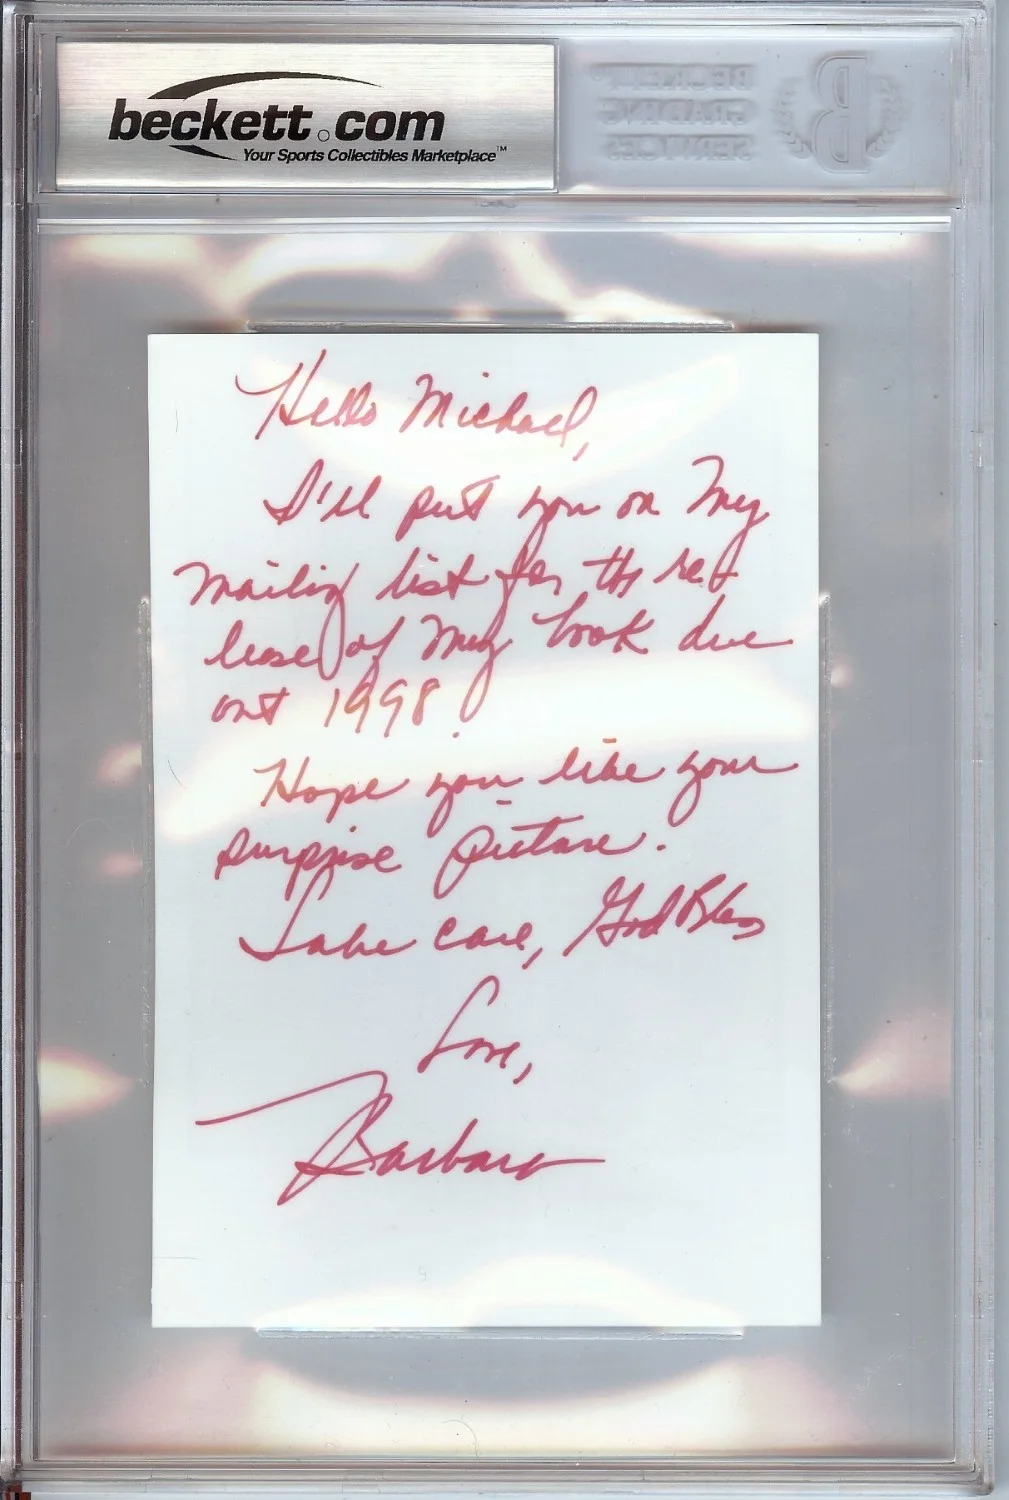 beckett.com
Your Sports Collectibles Marketplace™
BECKETT®
GRADING
SERVICES
B
Hello Michael,
I'll put you on My
mailing list for the re-
lease of My book due
out 1998.
Hope you like your
surprise picture.
Take care, God Bless
Love,
Barbara